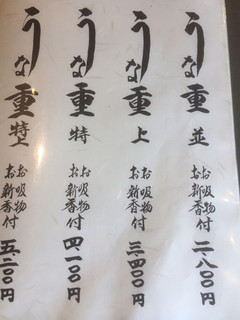 うな重 並
お吸物
お新香付
二、八〇〇円
うな重 上
お吸物
お新香付
三、四〇〇円
うな重 特
お吸物
お新香付
四、一〇〇円
うな重 特上
お吸物
お新香付
五、二〇〇円